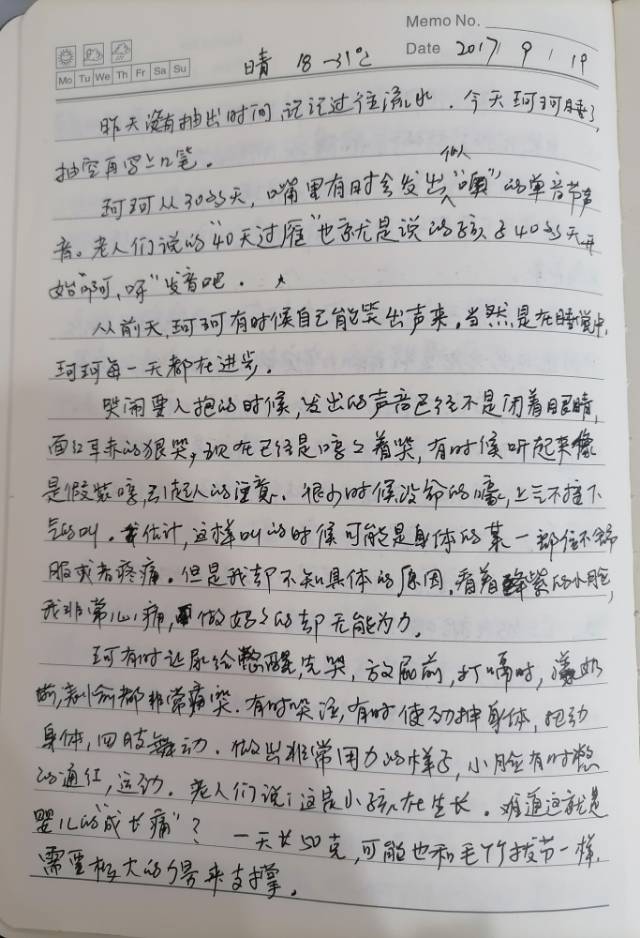 Memo No.
Mo Tu We Th Fr Sa Su
晴 18-31℃ Date 2017 / 9 / 19
昨天没有抽出时间,记记过往流水.今天珂珂睡了,
抽空再写上几笔.
珂珂从30多天,嘴里有时会发出似“噢”的单音节声
音。老人们说的“40天过雁”也就是说的孩子40多天开
始“啊,呀”发音吧.
从前天,珂珂有时候自己能笑出声来,当然是在睡觉中,
珂珂每一天都在进步.
哭闹要人抱的时候,发出的声音已经不是闭着眼睛,
面红耳赤的狠哭,现在已经是哼哼着哭,有时候听起来像
是假装哼,引起人的注意.很少时候没命的嚎,上气不接下
气的叫.我估计,这样叫的时候可能是身体的某一部位不舒
服或者疼痛.但是我却不知具体的原因,看着酱紫的小脸,
我非常心痛,做妈妈的却无能为力.
珂有时让尿给憋醒,先哭,放屁前,打嗝时,漾奶
前,拉前都非常痛哭.有时哭泣,有时使劲抻身体,扭动
身体,四肢舞动.做出非常用力的样子,小脸有时憋
的通红,运动.老人们说:这是小孩在生长.难道这就是
婴儿的“成长痛”?一天长50克,可能也和毛竹拔节一样,
需要极大的 来支撑.